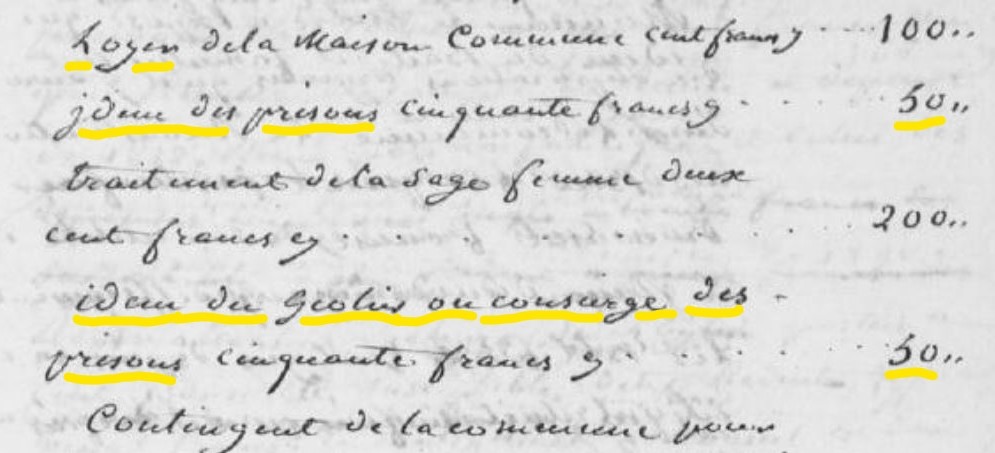 Loyer dela Maison Commune cent francs cy ..... 100..
jdem des prisons cinquante francs cy . . . . 50..
traitement dela Sage femme deux
cent francs cy . . . . . . . . . 200..
idem du Geolier ou consierge des
prisons cinquante francs cy . . . . . . 50..
Contingent de la commune pour